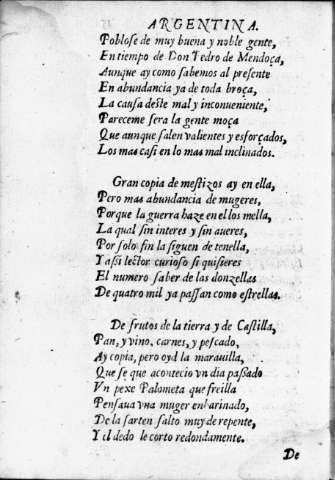 ARGENTINA.
Poblose de muy buena y noble gente,
En tiempo de Don Pedro de Mendoça,
Aunque ay como sabemos al presente
En abundancia ya de toda broça,
La causa deste mal y inconueniente,
Pareceme sera la gente moça
Que aunque salen valientes y esforçados,
Los mas casi en lo mas mal inclinados.
Gran copia de mestizos ay en ella,
Pero mas abundancia de mugeres,
Porque la guerra haze en ellos mella,
La qual sin interes y sin aueres,
Por solo fin la siguen de tenella,
Y assi lector curioso si quisieres
El numero saber de las donzellas
De quatro mil ya passan como estrellas.
De frutos de la tierra y de Castilla,
Pan, y vino, carnes, y pescado,
Ay copia, pero oyd la marauilla,
Que se que acontecio vn dia passado
Vn pexe Palometa que freilla
Pensaua vna muger enharinado,
De la sarten salto muy de repente,
Y el dedo le corto redondamente.
De